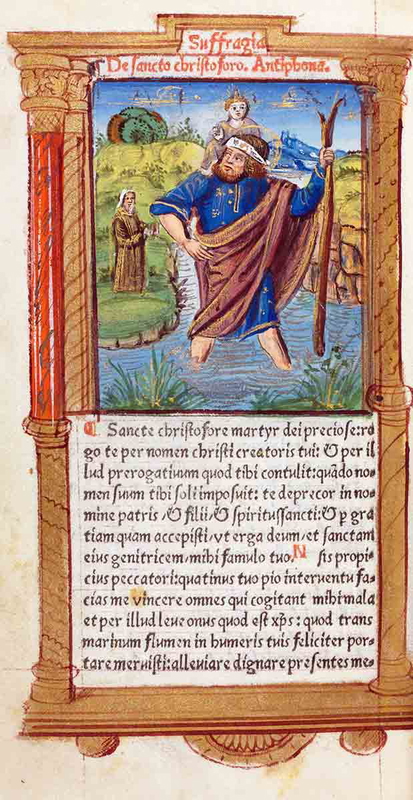 Suffragia
De sancto christoforo. Antiphona.
Sancte christofore martyr dei preciose: ro
go te per nomen christi creatoris tui: & per il
lud prerogatiuum quod tibi contulit: quādo no-
men suum tibi soli imposuit: te deprecor in no-
mine patris / & filii / & spiritussancti: & p gra
tiam quam accepisti / vt erga deum / et sanctam
eius genitricem / mihi famulo tuo. N sis propi-
cius peccatori: quatinus tuo pio interuentu fa-
cias me vincere omnes qui cogitant mihi mala
et per illud leue onus quod est xp̄s: quod trans
marinum flumen in humeris tuis feliciter por-
tare meruisti: alleuiare dignare presentes me-